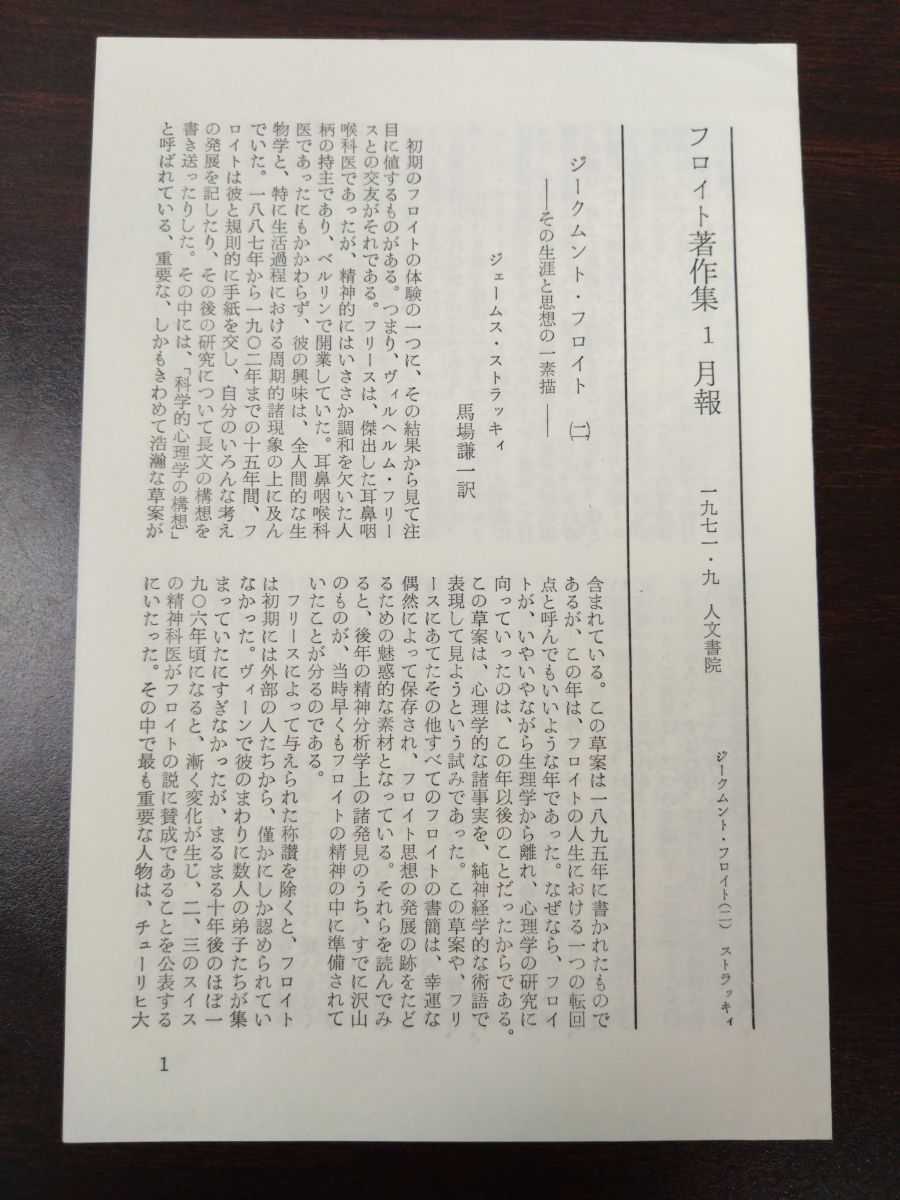 フロイト著作集 1 月報
一九七一・九 人文書院
ジークムント・フロイト(二) ストラッキィ
ジークムント・フロイト (二)
――その生涯と思想の一素描――
ジェームス・ストラッキィ
馬場謙一訳
初期のフロイトの体験の一つに、その結果から見て注
目に値するものがある。つまり、ヴィルヘルム・フリー
スとの交友がそれである。フリースは、傑出した耳鼻咽
喉科医であったが、精神的にはいささか調和を欠いた人
柄の持主であり、ベルリンで開業していた。耳鼻咽喉科
医であったにもかかわらず、彼の興味は、全人間的な生
物学と、特に生活過程における周期的諸現象の上に及ん
でいた。一八八七年から一九〇二年までの十五年間、フ
ロイトは彼と規則的に手紙を交し、自分のいろんな考え
の発展を記したり、その後の研究について長文の構想を
書き送ったりした。その中には、「科学的心理学の構想」
と呼ばれている、重要な、しかもきわめて浩瀚な草案が
含まれている。この草案は一八九五年に書かれたもので
あるが、この年は、フロイトの人生における一つの転回
点と呼んでもいいような年であった。なぜなら、フロイ
トが、いやいやながら生理学から離れ、心理学の研究に
向っていったのは、この年以後のことだったからである。
この草案は、心理学的な諸事実を、純神経学的な術語で
表現して見ようという試みであった。この草案や、フリ
ースにあてたその他すべてのフロイトの書簡は、幸運な
偶然によって保存され、フロイト思想の発展の跡をたど
るための魅惑的な素材となっている。それらを読んでみ
ると、後年の精神分析学上の諸発見のうち、すでに沢山
のものが、当時早くもフロイトの精神の中に準備されて
いたことが分るのである。
フリースによって与えられた称讃を除くと、フロイト
は初期には外部の人たちから、僅かにしか認められてい
なかった。ヴィーンで彼のまわりに数人の弟子たちが集
まっていたにすぎなかったが、まるまる十年後のほぼ一
九〇六年頃になると、漸く変化が生じ、二、三のスイス
の精神科医がフロイトの説に賛成であることを公表する
にいたった。その中で最も重要な人物は、チューリヒ大
1